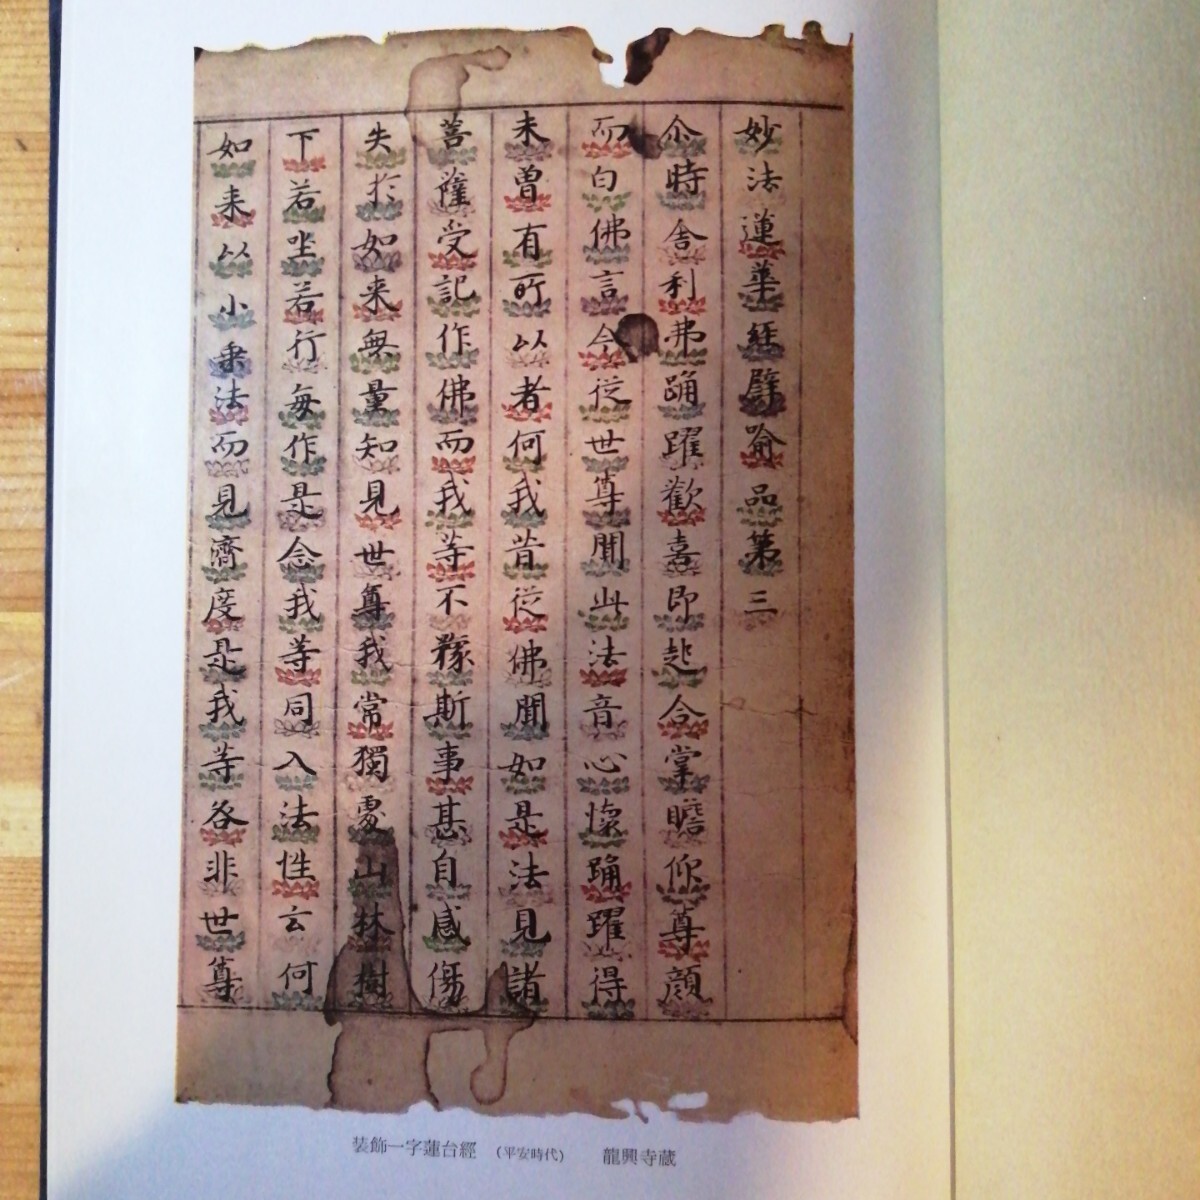 妙法蓮華経辟喻品第三
尒時舎利弗踊躍歓喜即起合掌瞻仰尊顔
而白佛言今従世尊聞此法音心懐踊躍得
未曽有所以者何我昔従佛聞如是法見諸
菩薩受記作佛而我等不豫斯事甚自感傷
失扵如来無量知見世尊我常獨處山林樹
下若坐若行毎作是念我等同入法性云何
如来以小乗法而見濟度是我等咎非世尊
装飾一字蓮台經 (平安時代) 龍興寺蔵